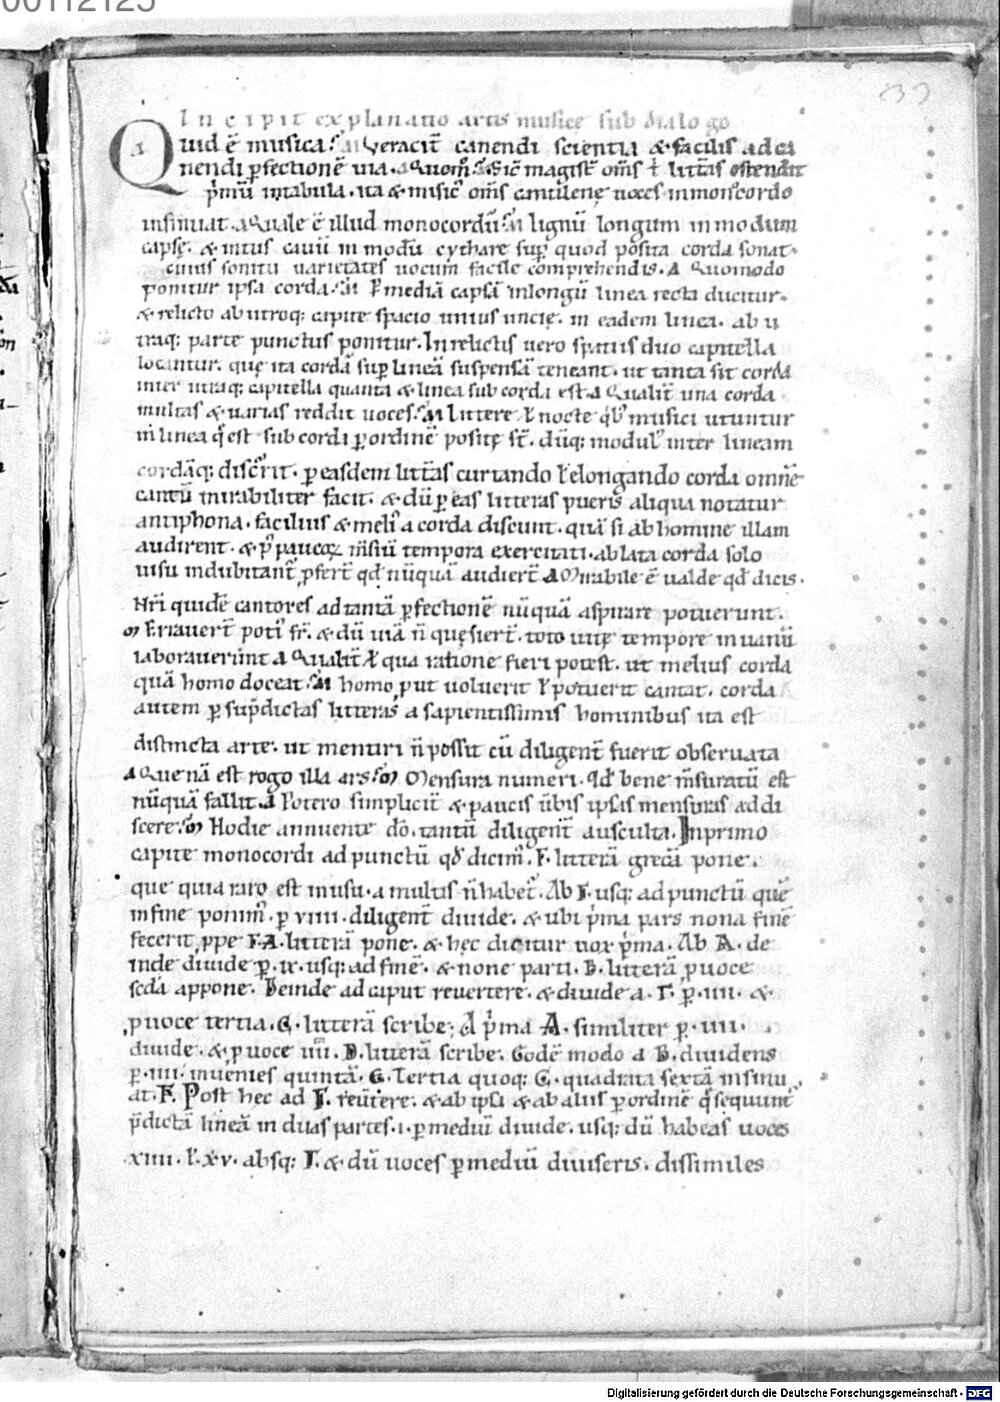 00112125
Incipit explanatio artis musicę sub dialogo
Quid ē musica? M Veracit̄ canendi scientia & facilis ad ca
nendi ꝑfectionē uia. Δ Quom̄? M Sic̄ magist̄ om̄s t̄ litt̄as ostendit
p̄mū in tabula. ita & music᾽ om̄s cantilenę uoces in monocordo
insinuat. Δ Quale ē illud monocordū? M lignū longum in modum
capsę. & intus cauū in modū cytharę suꝑ quod posita corda sonat.
cuius sonitu uarietates uocum facile comprehendis. Δ Quomodo
ponitur ipsa corda? M ꝑ mediā capsā in longū linea recta ducitur.
& relicto ab utroq; capite spacio unius uncię. in eadem linea. ab u
traq; parte punctus ponitur. In relictis uero spatiis duo capitella
locantur. quę ita cordā suꝑ lineā suspensā teneant. ut tanta sit corda
inter utraq; capitella quanta & linea sub corda est. Δ Qualit̄ una corda
multas & uarias reddit uoces? M Littere ł nocte qb᾽ musici utuntur
in linea q̄ est sub corda ꝑ ordinē positę st̄. dūq; modul᾽ inter lineam
cordāq; discr̄rit. ꝑ easdem litt̄as curtando ł elongando corda omnē
cantū mirabiliter facit. & dū ꝑ eas litteras pueris aliqua notatur
antiphona. facilius & meli᾽ a corda discunt. quā si ab homine illam
audirent. & p᾽ paucoꝝ m̄siū tempora exercitati. ablata corda solo
uisu indubitant̄ ꝓfert̄ qd̄ nūquā audiert̄ Δ Mirabile ē ualde qd̄ dicis.
Nr̄i quidē cantores ad tantā ꝑfectionē nūquā aspirare potuerunt.
M Errauert̄ poti᾽ fr̄. & dū uiā n̄ quęsiert̄. toto uitę tempore in uanū
laborauerunt Δ Qualit̄ ł qua ratione fieri potest. ut melius corda
quā homo doceat? M homo ꝓut uoluerit ł potuerit cantat. corda
autem ꝑ sup̄dictas litteras a sapientissimis hominibus ita est
distincta arte. ut mentiri n̄ possit cū diligent̄ fuerit obseruata
Δ Que nā est rogo illa ars? M Mensura numeri. qd̄ bene m̄suratū est
nūquā fallit. Δ Potero simplicit̄ & paucis ūbis ipsas mensuras addi
scere? M Hodie annuente dō. tantū diligent̄ ausculta. In primo
capite monocordi ad punctū qd̄ dicim᾽. Γ. litterā grecā pone.
que quia raro est in usu. a multis n̄ habet᾽. Ab Γ. usq; ad punctū quē
in fine ponim᾽. ꝑ VIIII. diligent̄ diuide. & ubi p̄ma pars nona finē
fecerit ꝓpe Γ. A. litterā pone. & hęc dicitur uox p̄ma. Ab A. de
inde diuide ꝑ. IX. usq; ad finē. & none parti. B. litterā ꝓ uoce
sc̄da appone. Deinde ad caput reuertere. & diuide a. Γ. ꝑ. IIII. &
ꝓ uoce tertia. C. litterā scribe; A p̄ma A. similiter ꝑ. IIII.
diuide. & ꝓ uoce IIII. D. litterā scribe. Eodē modo a B. diuidens
ꝑ. IIII. inuenies quintā. E. Tertia quoq; C. quadrata sextā insinu
at. F. Post hęc ad Γ. reūtere. & ab ipsa & ab aliis ꝑ ordinē q̄ sequunt᾽
p̄dictā lineā in duas partes .i. ꝑ mediū diuide. usq; dū habeas uoces
XIIII. ł. XV. absq; Γ. & dū uoces ꝑ mediū diuiseris. dissimiles
Digitalisierung gefördert durch die Deutsche Forschungsgemeinschaft - DFG